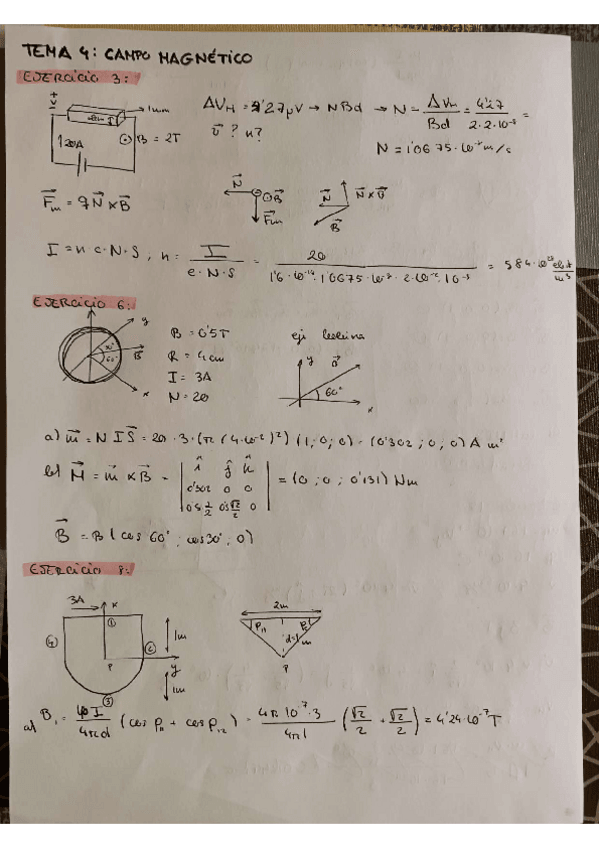 TEMA 4: CAMPO MAGNÉTICO
EJERCICIO 3:
+ V -
1mm
I
20A
B = 2T
ΔV_H = 4'27μV → NBd → N = ΔV_H / Bd = 4'27 / 2·2·10^-2 =
v⃗? n?
N = 1'0675·10^-4 m/s
F⃗m = q N⃗ × B⃗
N⃗
B⃗
F⃗m
N⃗
B⃗
I = n e · N · S, n = I / e·N·S = 20 / 1'6·10^-19·1'0675·10^-4·2·10^-2·10^-3
EJERCICIO 6:
y
30°
60°
B⃗
x
B = 0'5T
R = 4cm
I = 3A
N = 20
y
60°
x
a) m⃗ = N I S⃗ = 20 · 3 · (π (4·10^-2)^2) (1, 0, 0) = (0'302, 0, 0) A m²
b) M⃗ = m⃗ × B⃗ = | î ĵ k̂ | = (0, 0, 0'131) Nm
0'302 0 0
B⃗ = B (cos 60°, cos 30°, 0)
EJERCICIO 8:
3A
x
①
④
②
1m
P
y
③
1m
2m
d=1m
P
a) B₁ = μ₀ I / 4πd (cos β₁₁ + cos β₁₂) = 4π 10^-7·3 / 4π1 (√2/2 + √2/2) = 4'24·10^-7 T